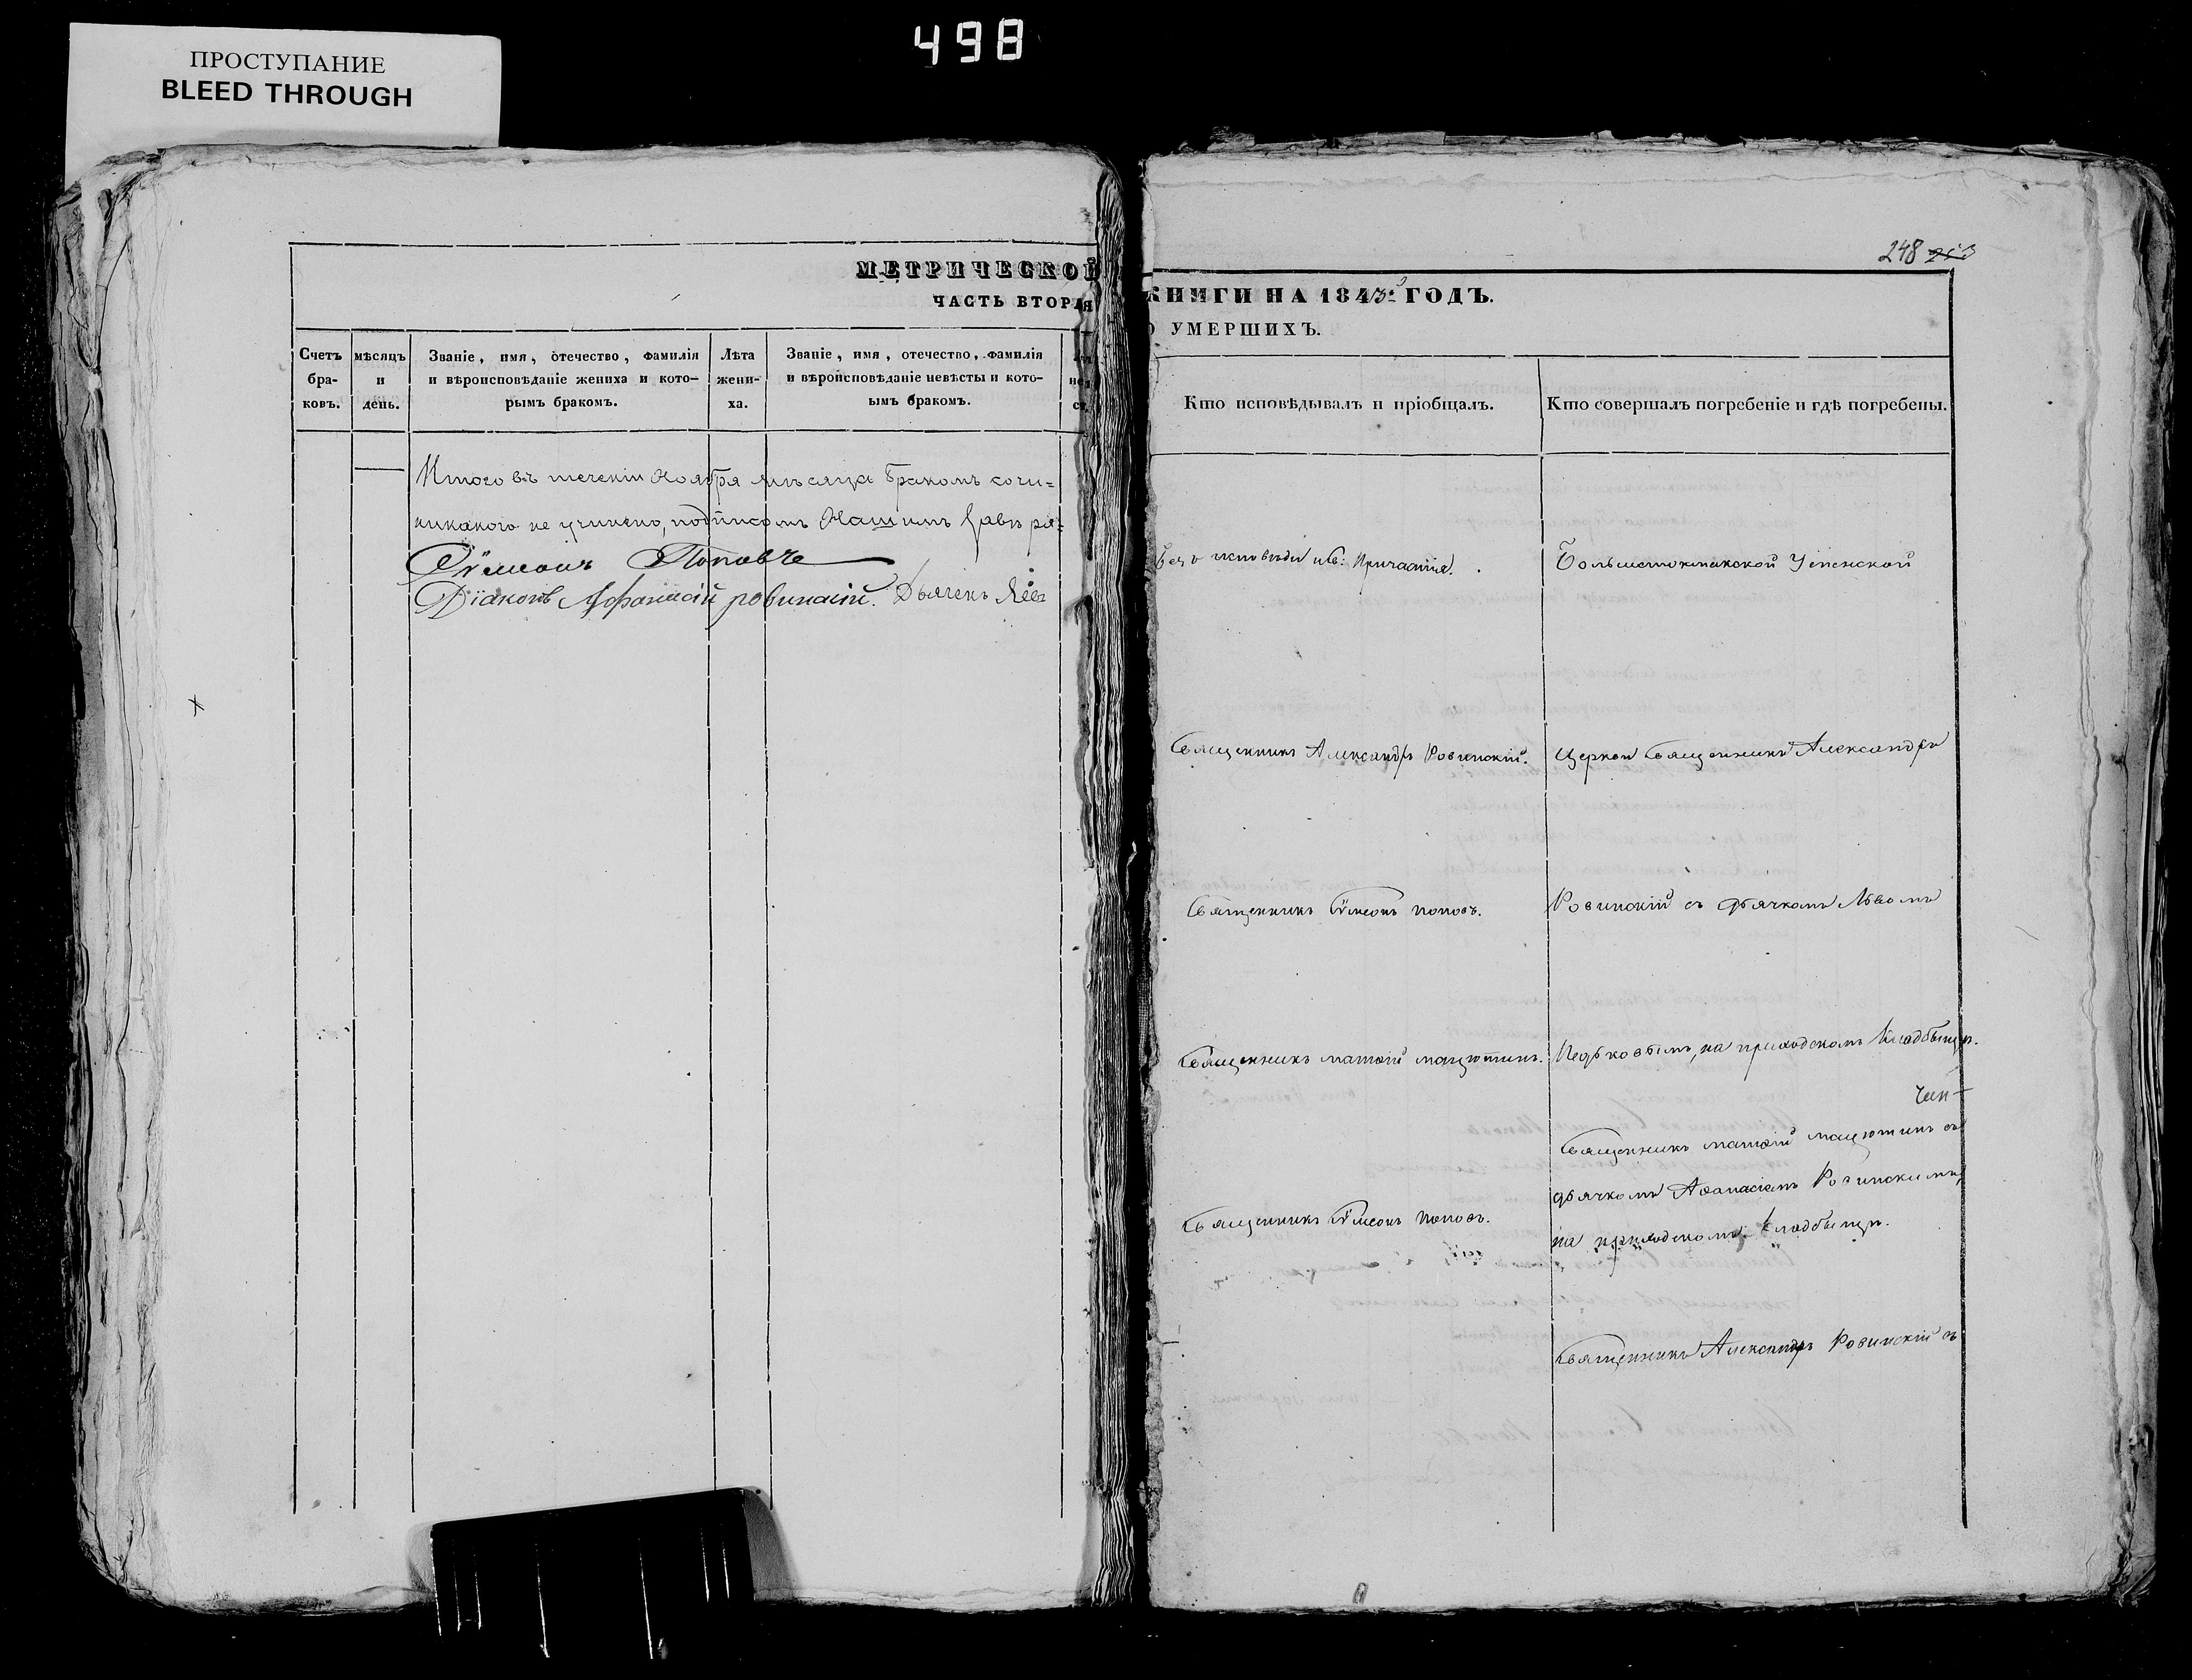 498
ПРОСТУПАНИЕ
BLEED THROUGH
МЕТРИЧЕСКОЙ
ЧАСТЬ ВТОРАЯ
Счетъ бра-ковъ.
мѣсяцъ и день.
Званіе, имя, отечество, фамилія
и вѣроисповѣданіе жениха и кото-
рымъ бракомъ.
Лѣта жени-ха.
Званіе, имя, отечество, фамилія
и вѣроисповѣданіе невѣсты и кото-
ымъ бракомъ.
Итого въ теченіи Ноября мѣсяца браком сочи-
никакого не учинено, подписомъ Нашимъ завѣря-
Сѵмеонъ Поповъ
Діаконъ Афанасій ровинскій. Дьячекъ Левъ
248
КНИГИ НА 1843й ГОДЪ.
О УМЕРШИХЪ.
Кто исповѣдывалъ и пріобщалъ.
Кто совершалъ погребеніе и гдѣ погребены.
Безъ исповѣди и Св: Причастія.
Большетокмакской Успенской
Священникъ Александръ Ровинскій.
Церкви Священникъ Александръ
Священникъ Сѵмеонъ поповъ.
Ровинскій съ дьячкомъ Львомъ
Священникъ матѳій мацютинъ.
на приходскомъ Кладбищѣ.
Священникъ матѳій мацютинъ съ
дьячкомъ Аѳанасіемъ Ровинскимъ,
Священникъ Сѵмеонъ поповъ.
на приходскомъ Кладбищѣ.
Священникъ Александръ Ровинскій съ